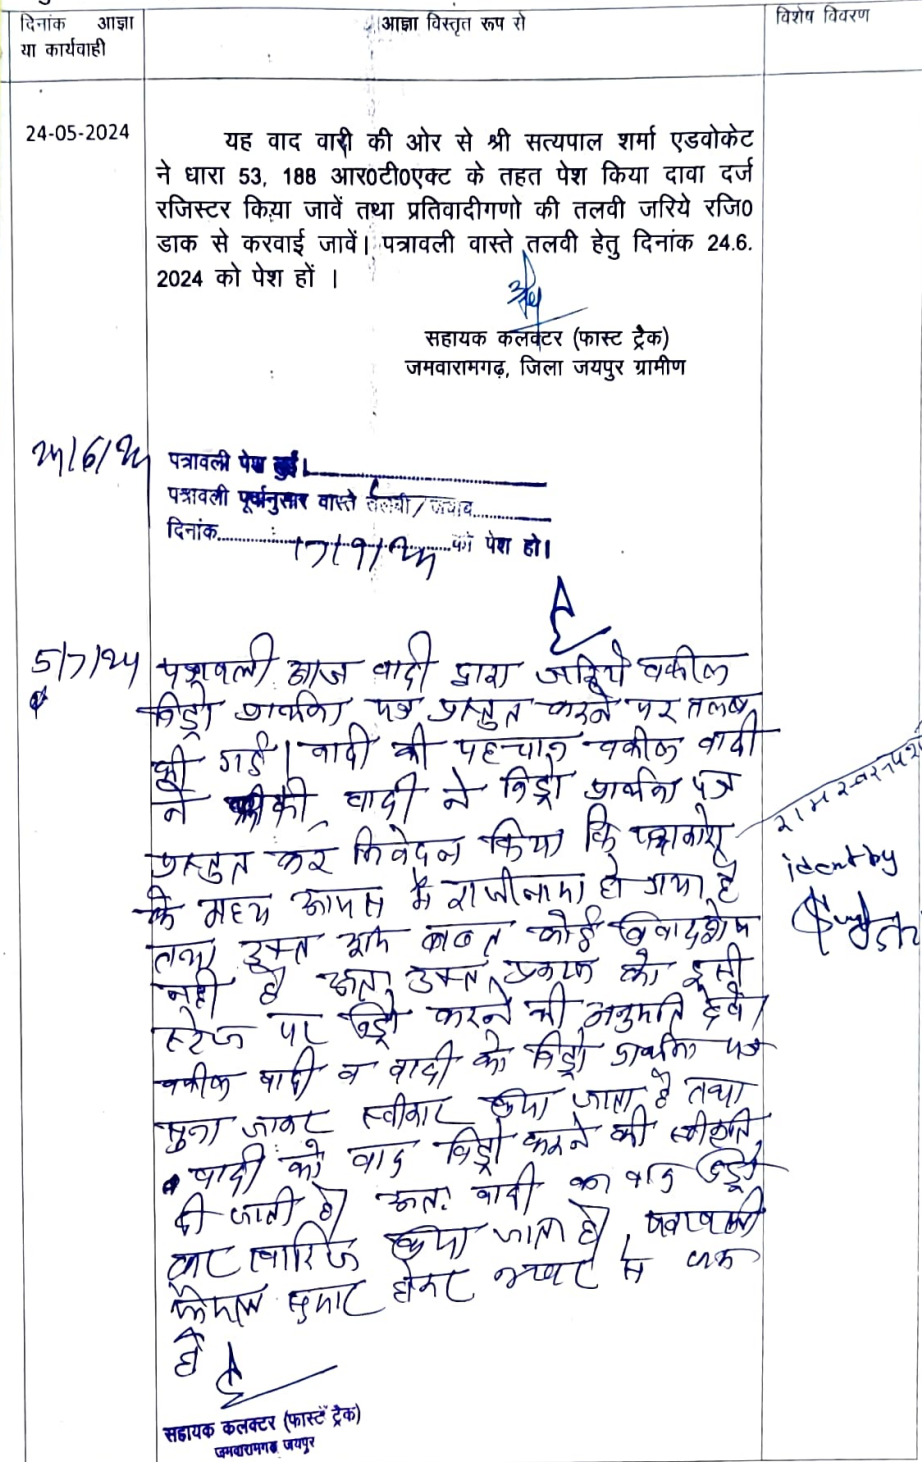 दिनांक आज्ञा
या कार्यवाही
आज्ञा विस्तृत रूप से
विशेष विवरण
24-05-2024
यह वाद वादी की ओर से श्री सत्यपाल शर्मा एडवोकेट
ने धारा 53, 188 आर0टी0एक्ट के तहत पेश किया दावा दर्ज
रजिस्टर किया जावें तथा प्रतिवादीगणो की तलवी जरिये रजि0
डाक से करवाई जावें। पत्रावली वास्ते तलवी हेतु दिनांक 24.6.
2024 को पेश हों ।
सहायक कलक्टर (फास्ट ट्रैक)
जमवारामगढ़, जिला जयपुर ग्रामीण
24/6/24
पत्रावली पेश हुई।
पत्रावली पूर्वानुसार वास्ते तलवी/जवाब
दिनांक 17/9/24 को पेश हो।
5/7/24
पत्रावली आज वादी द्वारा जरिये वकील
विड्रो प्रार्थना पत्र प्रस्तुत करने पर तलब
की गई। वादी की पहचान वकील वादी
ने की, वादी ने विड्रो प्रार्थना पत्र
प्रस्तुत कर निवेदन किया कि पक्षकारो
के मध्य आपस मे राजीनामा हो गया है
तथा उक्त बाबत कोई विवाद शेष
नही है अतः उक्त प्रकरण को इसी
स्टेज पर विड्रो करने की अनुमति देवे।
वकील वादी व वादी को विड्रो प्रार्थना पत्र
सुना जाकर स्वीकार किया जाता है तथा
वादी को वाद विड्रो करने की स्वीकृति
दी जाती है। अतः वादी का वाद विड्रो
कर खारिज किया जाता है। पत्रावली
फैसल सुमार होकर नम्बर से कम
हो
identby
सहायक कलक्टर (फास्ट ट्रैक)
जमवारामगढ़ जयपुर